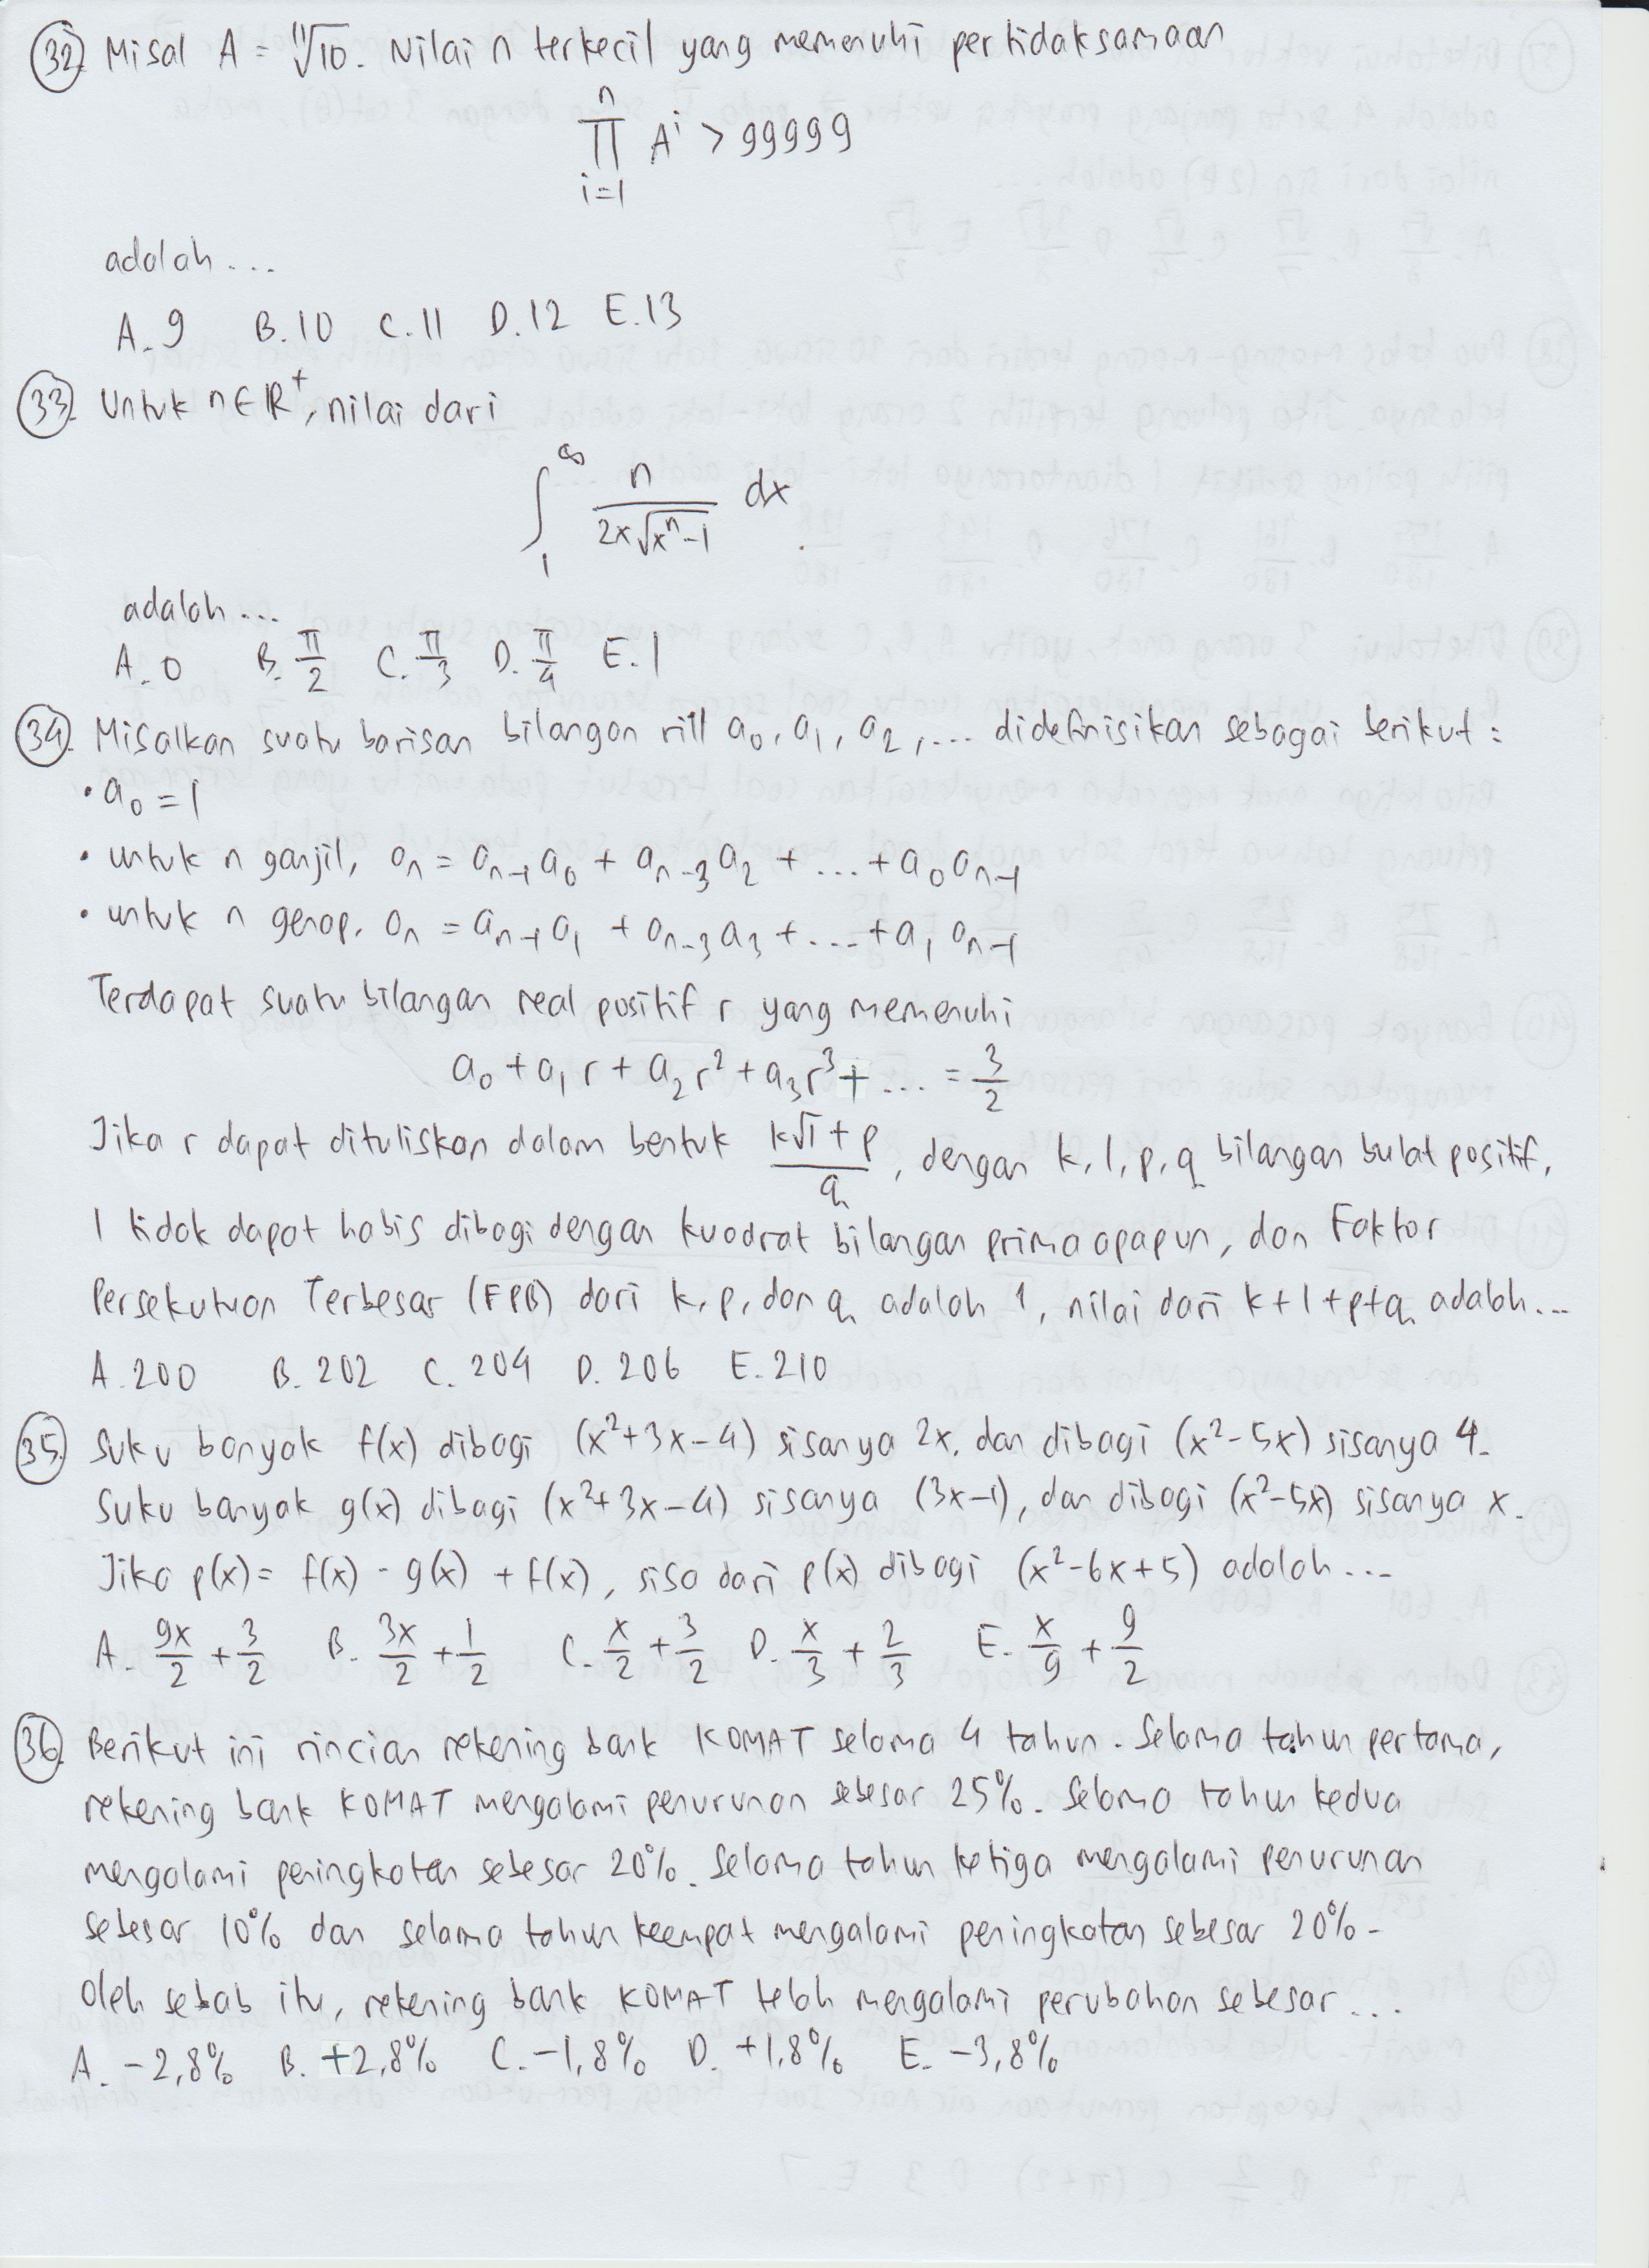 32. Misal A = ¹¹√10. Nilai n terkecil yang memenuhi pertidaksamaan
n
∏ Aⁱ > 99999
i=1
adalah ...
A. 9 B. 10 C. 11 D. 12 E. 13
33. Untuk n ∈ R⁺, nilai dari
∫₁^∞ n / (2x√(xⁿ-1)) dx
adalah ...
A. 0 B. π/2 C. π/3 D. π/4 E. 1
34. Misalkan suatu barisan bilangan riil a₀, a₁, a₂, ... didefinisikan sebagai berikut :
• a₀ = 1
• untuk n ganjil, aₙ = aₙ₋₁a₀ + aₙ₋₃a₂ + ... + a₀aₙ₋₁
• untuk n genap, aₙ = aₙ₋₁a₁ + aₙ₋₃a₃ + ... + a₁aₙ₋₁
Terdapat suatu bilangan real positif r yang memenuhi
a₀ + a₁r + a₂r² + a₃r³ + ... = 3/2
Jika r dapat dituliskan dalam bentuk (k√l + p)/q, dengan k, l, p, q bilangan bulat positif,
l tidak dapat habis dibagi dengan kuadrat bilangan prima apapun, dan Faktor
Persekutuan Terbesar (FPB) dari k, p, dan q adalah 1, nilai dari k+l+p+q adalah...
A. 200 B. 202 C. 204 D. 206 E. 210
35. Suku banyak f(x) dibagi (x²+3x-4) sisanya 2x, dan dibagi (x²-5x) sisanya 4.
Suku banyak g(x) dibagi (x²+3x-4) sisanya (3x-1), dan dibagi (x²-5x) sisanya x.
Jika p(x) = f(x) - g(x) + f(x), sisa dari p(x) dibagi (x²-6x+5) adalah ...
A. 9x/2 + 3/2 B. 3x/2 + 1/2 C. x/2 + 3/2 D. x/3 + 2/3 E. x/9 + 9/2
36. Berikut ini rincian rekening bank KOMAT selama 4 tahun. Selama tahun pertama,
rekening bank KOMAT mengalami penurunan sebesar 25%. Selama tahun kedua
mengalami peningkatan sebesar 20%. Selama tahun ketiga mengalami penurunan
sebesar 10% dan selama tahun keempat mengalami peningkatan sebesar 20%.
Oleh sebab itu, rekening bank KOMAT telah mengalami perubahan sebesar ...
A. -2,8% B. +2,8% C. -1,8% D. +1,8% E. -3,8%